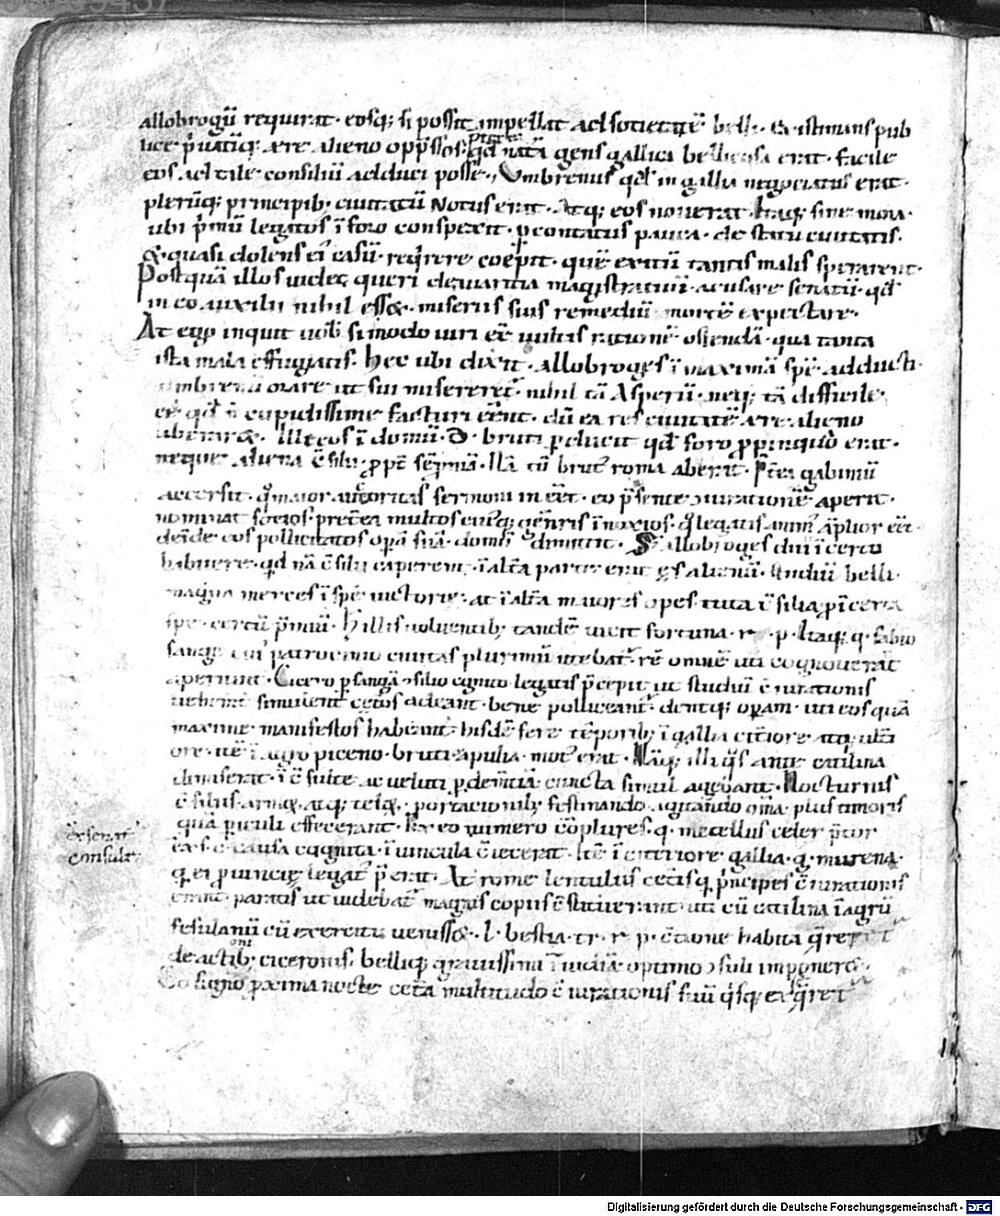 allobrogū requirat· eosq; si possit impellat ad societatē belli· existimans pub
lice p̄uatīq; ære alieno opp̄ssos· p̄terea qđ natā gens gallica bellicosa erat· facile
eos ad tale consiliū adduci posse· Umbrenus qđ in gallia negociatus erat·
plerūq; principib; ciuitatū notus erat· Atq; eos nouerat· Itaq; sine mora·
ubi p̄mū legatos ī foro conspexit· pcontatus pauca· de statu ciuitatis·
& quasi dolens eī casū· reqrere coepit· quē exitū tantis malis sperarent·
Postquā illos uidet queri de auaritia magistratuū· acusare senatū· qđ
in eo auxilii nihil ess&· miseriis suis remediū mortē expectare·
At ego inquit uob si modo uiri eē uultis rationē ostendā· qua tanta
ista mala effugiatis· Hec ubi dixit· allobroges ī maximā spē adducti·
umbrenū orare ut sui misereret̄· nihil tā asperū· neq; tā difficile
eē qđ ñ cupidissime facturi eēnt· dū ea res ciuitatē ære alieno
liberar&· Ille eos ī domū· D· bruti pducit qđ foro ppinquo erat·
neque aliena c̄silii ppt sēpniā· Nā tū brut' roma aberat· P̄tea gabiniū
accersit· q̊ maior auctoritas sermoni in eēt· eo p̄sente ɔiurationē aperit·
nominat socios· pretea multos cuiq; gen̄ris īnoxios· q̊ legatis anim' āplior eēt
deīde eos pollicitatos opā suā· domū dimittit· Sꝫ allobroges diu ī certo
habuere· qđ nā c̄silii caperent· ī alt̄a parte erat ęs alienū· studiū belli·
magna merces ī spe uictorie· at ī alt̄a maiores opes tuta c̄silia p īcerta
spe· certa p̄mia· H illis uoluentib; tandē uicit fortuna· r· p· Itaq; q· fabio
sange cui patrocinio ciuitas plurimū utebat̄· rē omnē uti cognouerāt
aperiunt· Cicero p sangā ɔsilio cognito legatis p̄cepit ut studiū c̄iurationis
uehemt̄ simulent cetos adeant· bene polliceant̄· dentq; opam· uti eos quā
maxime manifestos habeant· hisdē fere tēporib; ī gallia cit̄iore atq; ult̄i
ore· itē ī agro piceno· bruti· apulia· mot' erat· Nāq; illi q̄s ante catilina
dimiserat· ī c̄sulte ac ueluti p dem̄tiā cuncta simul agebant· Nocturnis
c̄siliis· armoꝝ· atq; teloꝝ· portacionib; festinando· agitando om̄a· plus timoris
quā piculi effecerant· Ex eo numero cōplures· q· metellus celer p̄tor
ex· s· c· causa cognita· ī uincula c̄iecerat· Itē ī citeriore gallia· g· murena·
q ei puincię legat' p̄erat· At rome lentulus cet̄is q p̄ncipes c̄iurationis
erant· paratis ut uidebat̄ magnis copiis c̄stituerant· uti cū catilina ī agrū
fesulanū cū exercitu uenisset· l· bestia· tr· r· p· c̄tione habita q̄reret
de actionib; ciceronis· belliq; grauissimi īuidiā optimo ɔsuli imponeret·
Eo signo pxima nocte cet̄a multitudo c̄iurationis suū q̄sq; exq̄ret
ex senat'
consulto
Digitalisierung gefördert durch die Deutsche Forschungsgemeinschaft - DFG